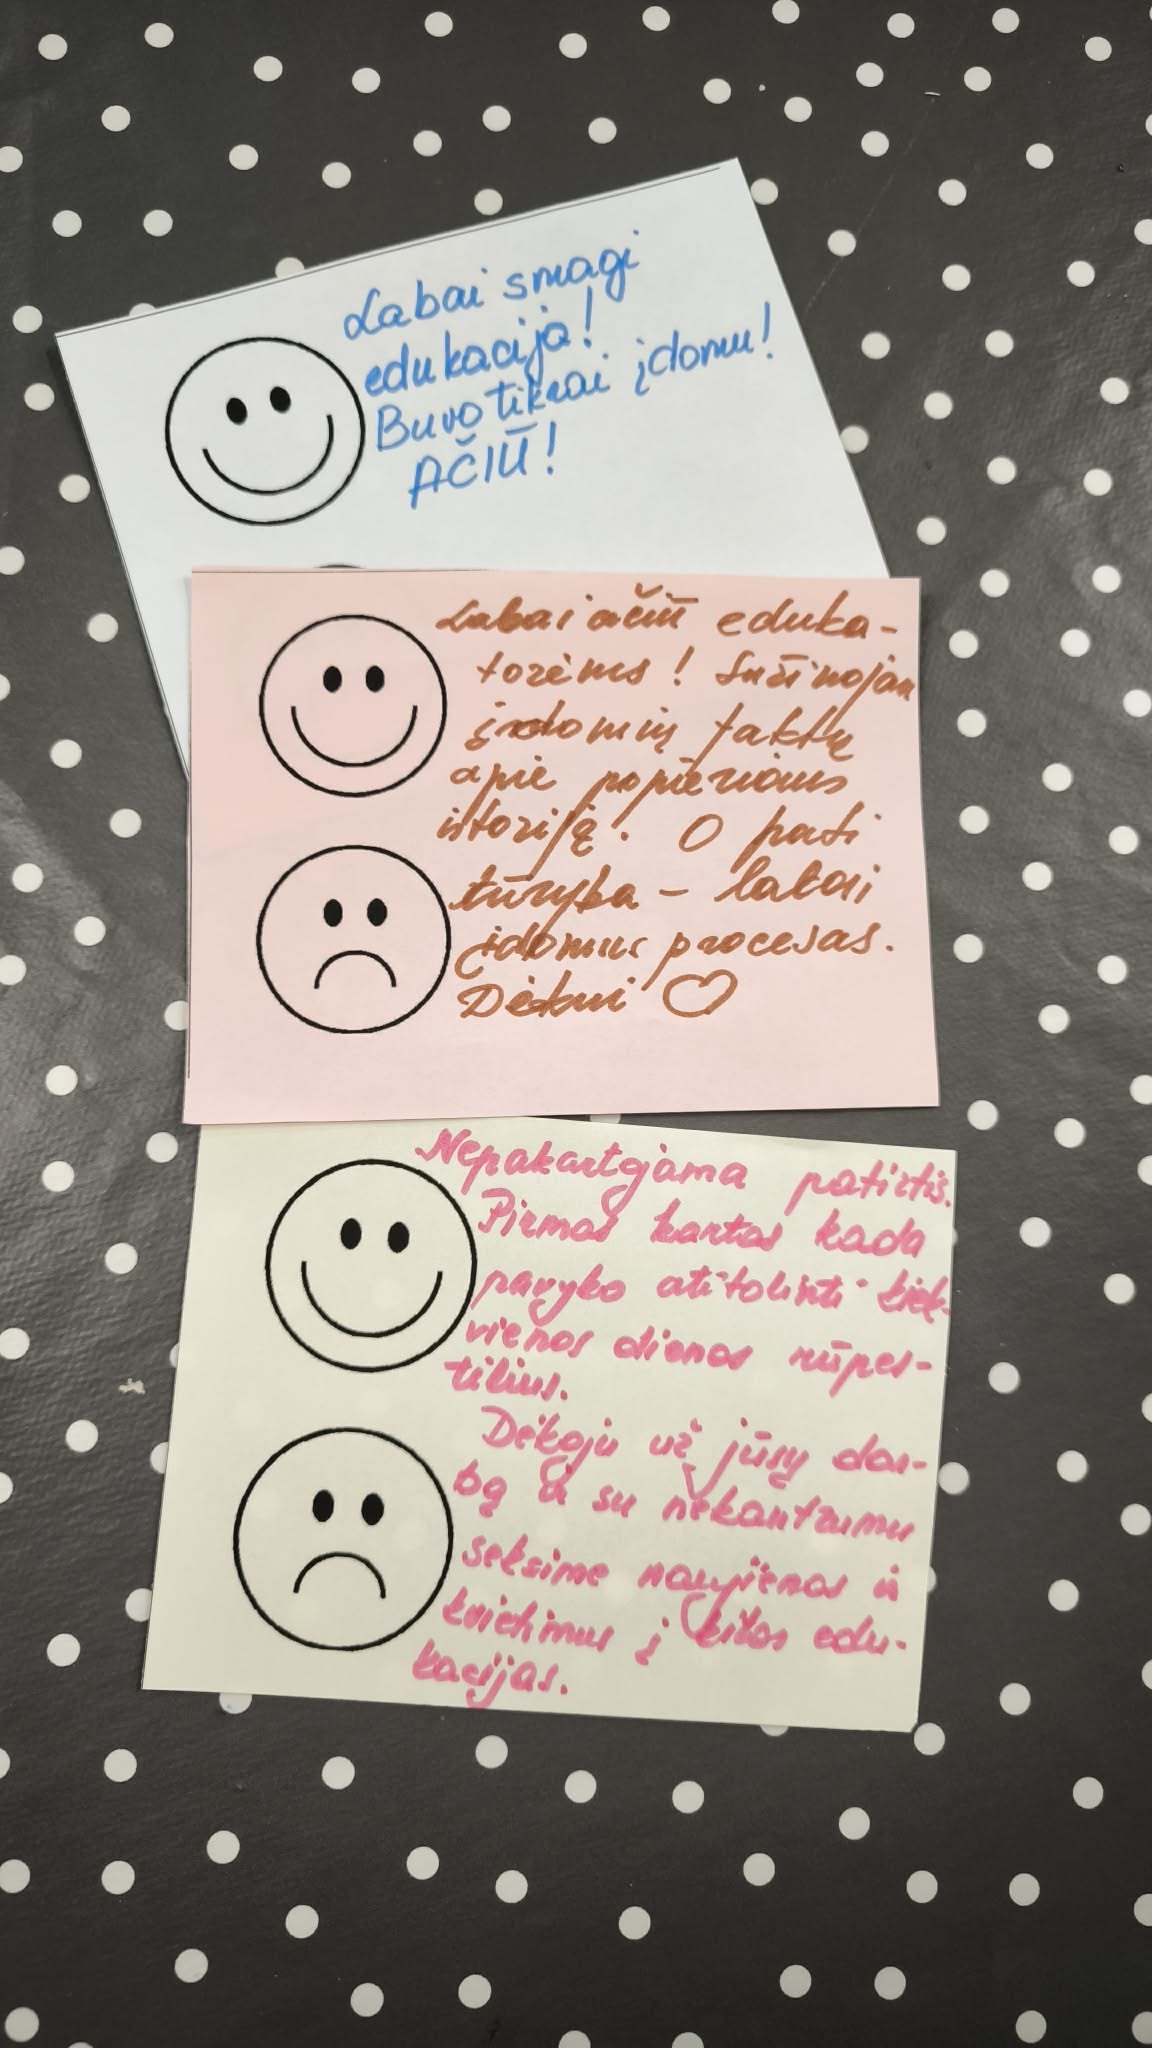 Labai smagi
edukacija!
Buvo tikrai įdomu!
AČIŪ!
Labai ačiū eduka-
torėms! Sužinojau
įdomių faktų
apie popieriaus
istoriją. O pati
kūryba - labai
įdomus procesas.
Dėkui
Nepakartojama patirtis.
Pirmas kartas kada
pavyko atitolinti kiek-
vienos dienos rūpes-
tėlius.
Dėkoju už jūsų dar-
bą ir su nekantrumu
seksime naujienas ir
kvietimus į kitas edu-
kacijas.